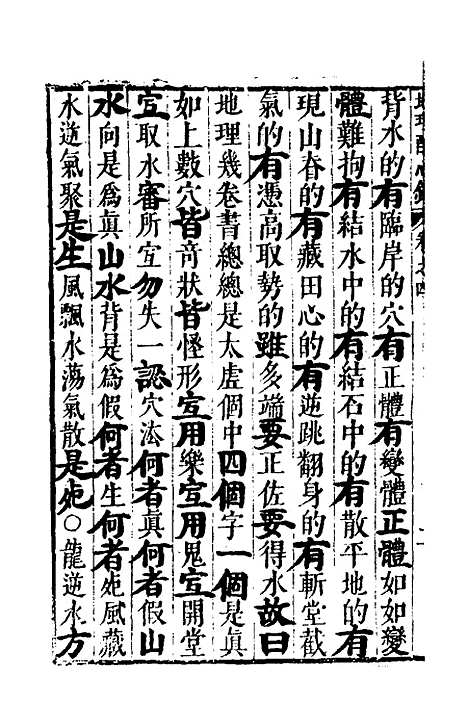 背水的有臨岸的穴有正體有變體正體如如變
體難拘有結水中的有結石中的有散平地的有
現山脊的有藏田心的有逆跳翻身的有斬堂截
氣的有憑高取勢的雖多端要正佐要得水故曰
地理幾卷書總總是太虛個中四個字一個是眞
如上數穴皆竒狀皆怪形宐用樂宐用鬼宐開堂
宐取水審所宐勿失一認穴法何者眞何者假山
水向是爲眞山水背是爲假何者生何者死風藏
水逆氣聚是生風飄水蕩氣散是死○龍逆水方